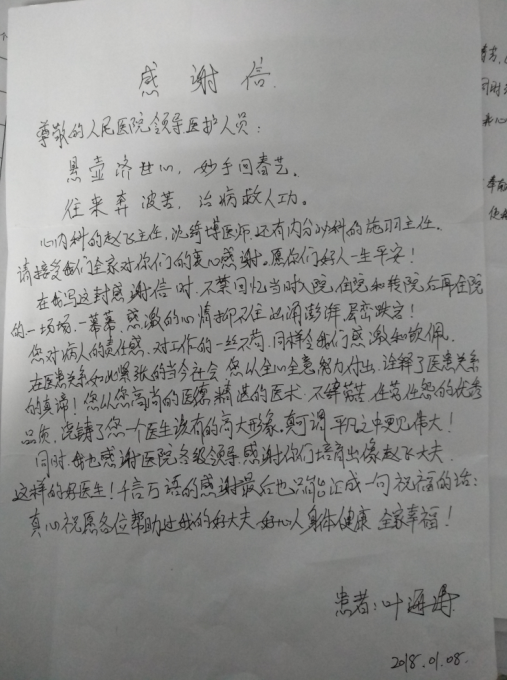 感谢信
尊敬的人民医院领导医护人员:
悬壶济世心,妙手回春艺。
往来奔波苦,治病救人功。
心内科的赵飞主任,沈绮博医师,还有内分泌科的施羽主任。
请接受我们全家对你们的衷心感谢。愿你们好人一生平安!
在我写这封感谢信时,不禁回忆当时入院,住院和转院后再住院
的一场场,一幕幕,感激的心情抑不住汹涌澎湃,
您对病人的责任感,对工作的一丝不苟,同样令我们感激和钦佩。
在医患关系如此紧张的当今社会,您以全心全意努力付出,诠释了医患关系
的真谛!您以您高尚的医德,精湛的医术,不辞劳苦,任劳任怨的优秀
品质,浇铸了您一个医生该有的高大形象。真可谓平凡之中更见伟大!
同时,我也感谢医院各级领导,感谢你们培育出像赵飞大夫
这样的好医生!千言万语的感谢最后也只能汇成一句祝福的话:
真心祝愿各位帮助过我的好大夫 好心人身体健康 全家幸福!
患者:叶海涛
2018.01.08.